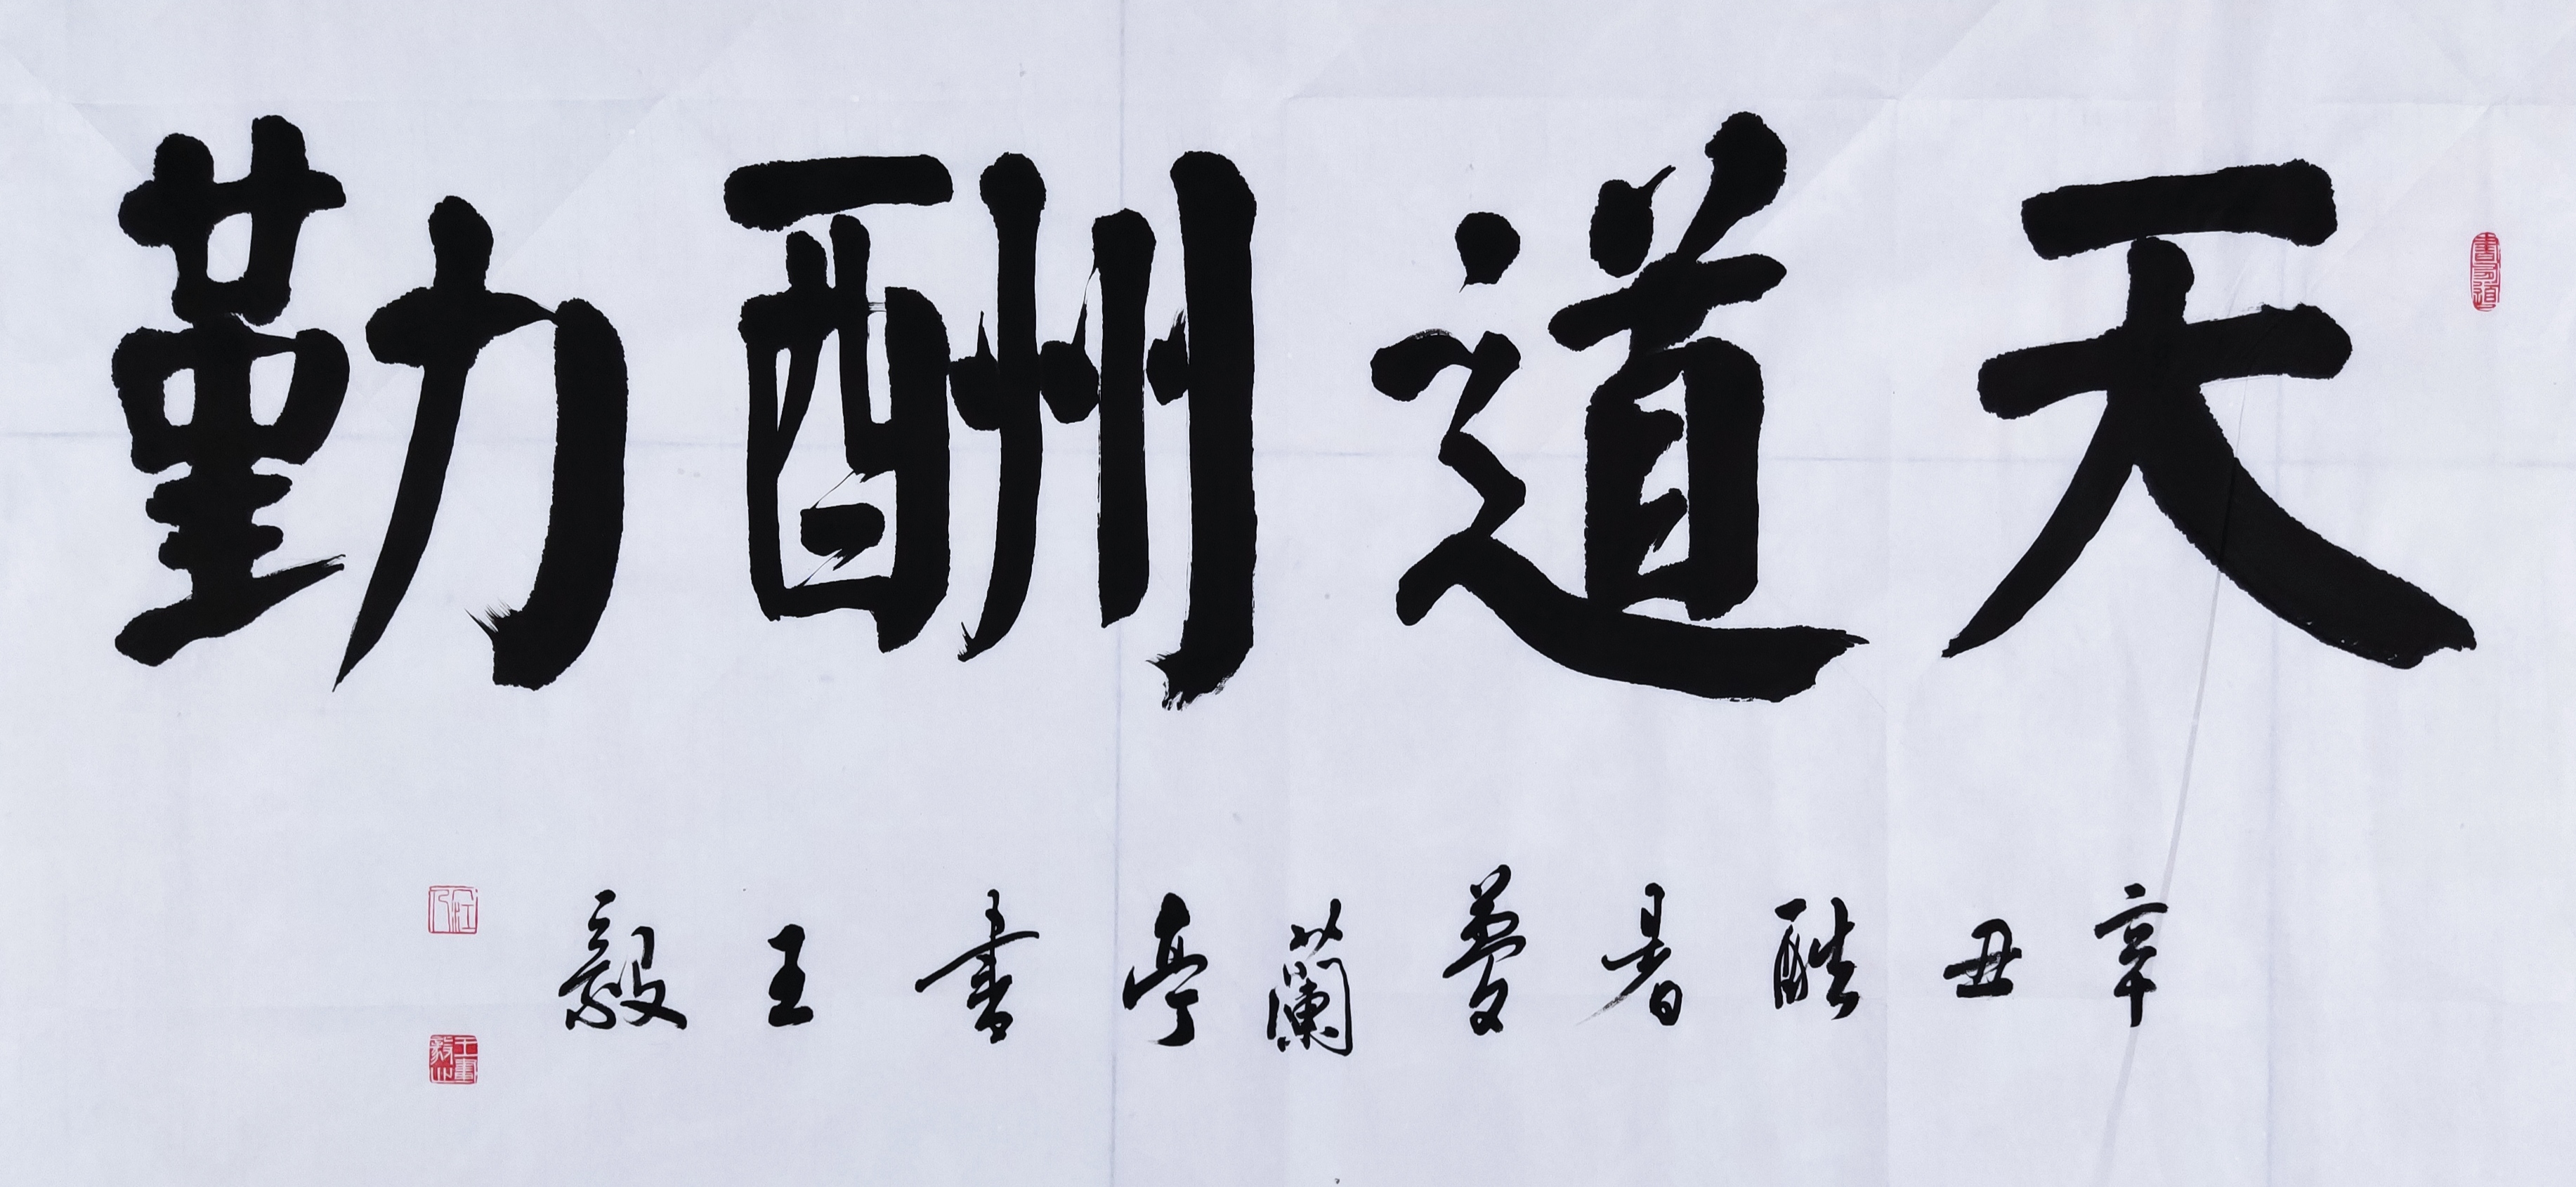 天道酬勤
辛丑酷暑夢蘭亭書王毅